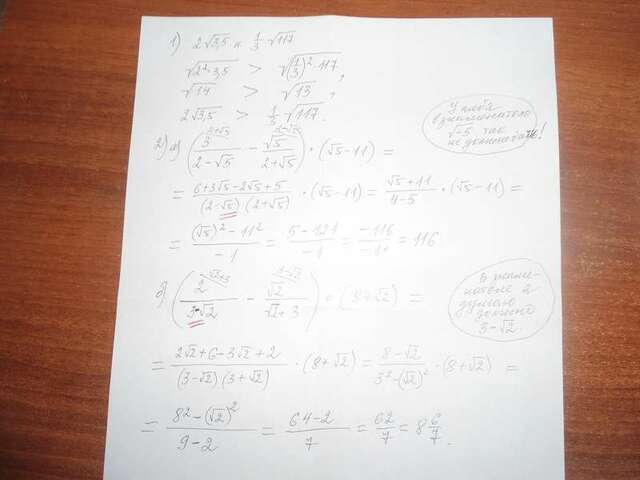 1) 2√3,5 и 1/3 √117
√(2²·3,5) > √((1/3)²·117) ,
√14 > √13 ,
2√3,5 > 1/3 √117.
У тебя
в знаменателе
√-5 так
не должно быть!
2) а) (3^(2+√5)/(2-√5) - √5^(2-√5)/(2+√5)) · (√5-11) =
= (6+3√5-2√5+5)/((2-√5)(2+√5)) · (√5-11) = (√5+11)/(4-5) · (√5-11) =
= ((√5)²-11²)/-1 = (5-121)/-1 = -116/-1 = 116
б) (2^(√2+3)/(3-√2) - √2^(3-√2)/(√2+3)) · (8+√2) =
В знаме-
нателе я
думаю
должно
3-√2.
= (2√2+6-3√2+2)/((3-√2)(3+√2)) · (8+√2) = (8-√2)/(3²-(√2)²) · (8+√2) =
= (8²-(√2)²)/(9-2) = (64-2)/7 = 62/7 = 8 6/7.